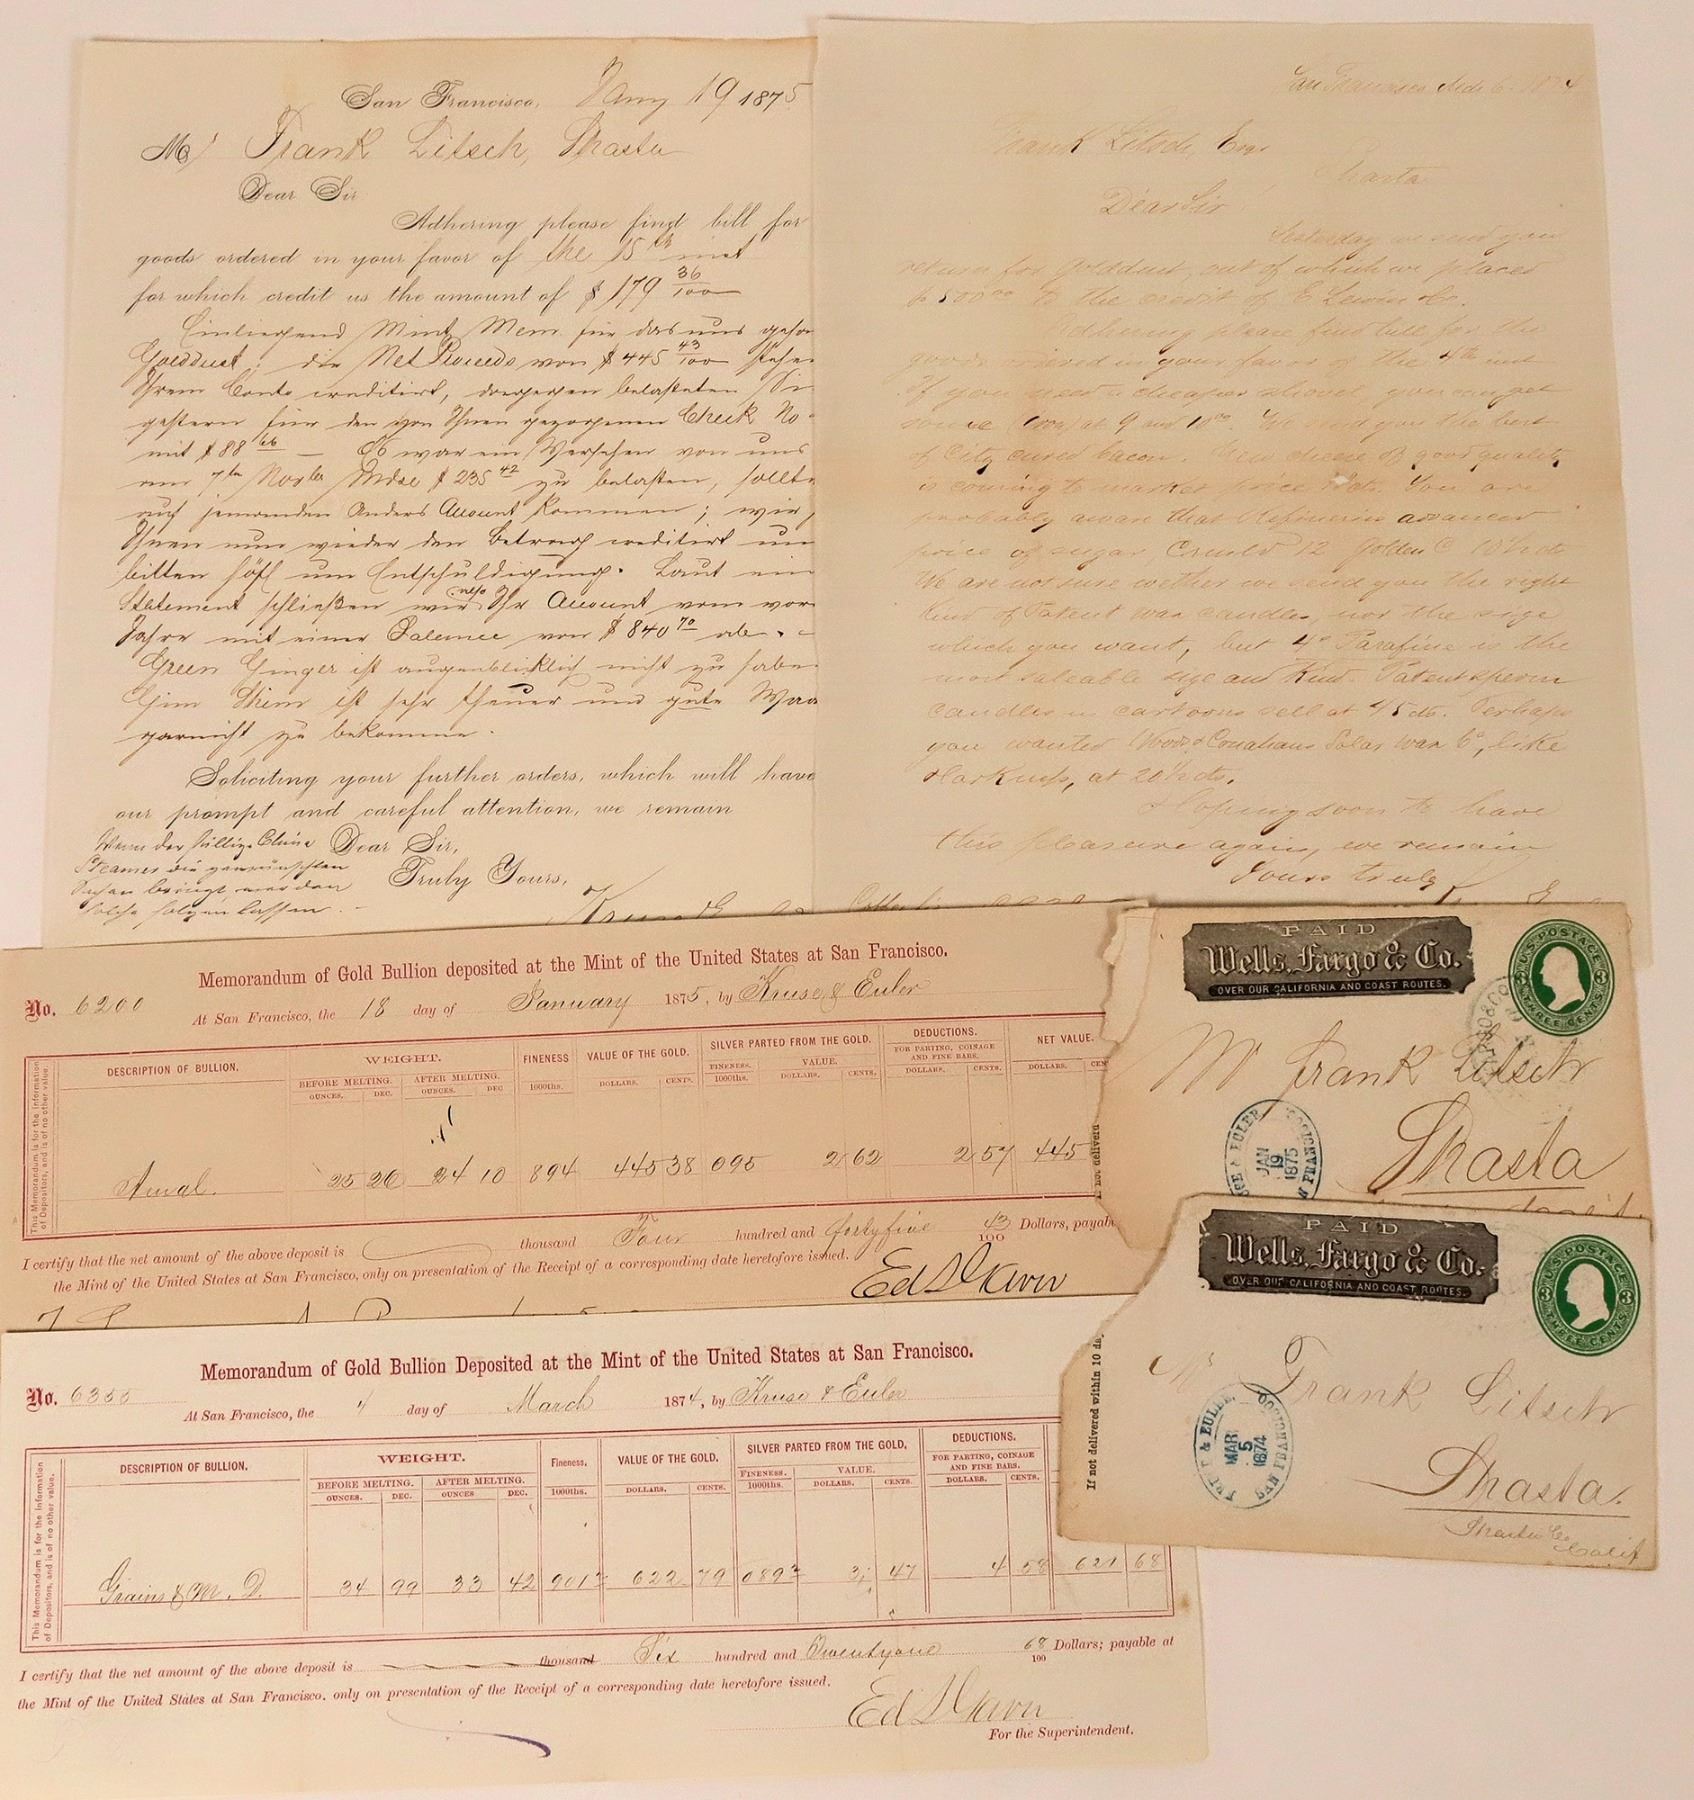 San Francisco, Jany 19 1875
Mr Frank Litsch, Shasta
Dear Sir
Adhering please find bill for
goods ordered in your favor of the 15th inst
for which credit us the amount of $ 179 36/100
Einliegend Mint Mem. für das uns
Golddust; die Net Proceeds von $ 445 43/100
Ihrem Conto creditirt, dagegen belasteten
gestern für den von Ihnen gezogenen Check No
mit $ 88 66 — Es war ein Versehen von uns
7ten Novbr Mdse $ 235 42 zu belasten, sollte
auf jemanden Anders Account kommen; wir
Ihnen nun wieder den Betrag creditirt
bitten höfl um Entschuldigung. Laut
Statement schließen wir also Ihr Account vom
Jahre mit einer Balance von $ 840 70 ab.
Green Ginger ist augenblicklich nicht zu
ist sehr theuer und gute
garnicht zu bekommen.
Soliciting your further orders, which will have
our prompt and careful attention, we remain
Wenn der China
Steamer die gewünschten
Sachen bringt werden
solche folgen lassen.
Dear Sir,
Truly Yours,
San Francisco 6 1874
Frank Litsch, Esqr
Shasta
Dear Sir
Yesterday we send you
return for golddust, out of which we placed
$ 500 00 to the credit of E Lewin & Co.
Adhering please find bill for the
goods ordered in your favor of the 4th inst
If you need a cheaper shovel, you can get
some at 9 and 10 00. We send you the best
of City cured bacon. New cheese of good quality
is coming to market price cts. You are
probably aware that Refineries advanced
price of sugar Crush'd 12 Golden C 10½ cts
We are not sure wether we send you the right
kind of Patent wax candles, nor the size
which you want, but 4° Parafine is the
most saleable size and Kind. Patent sperm
candles in cartoons sell at 45 cts. Perhaps
you wanted Solar wax 6°, like
Harkness, at 20½ cts.
Hoping soon to have
this pleasure again, we remain
Yours truly
Memorandum of Gold Bullion deposited at the Mint of the United States at San Francisco.
No. 6200 At San Francisco, the 18 day of January 1875, by Kruse & Euler
This Memorandum is for the information
of Depositors, and is of no other value.
DESCRIPTION OF BULLION. WEIGHT. FINENESS VALUE OF THE GOLD. SILVER PARTED FROM THE GOLD. DEDUCTIONS. NET VALUE.
BEFORE MELTING. AFTER MELTING. 1000ths. DOLLARS. CENTS. FINENESS. VALUE. FOR PARTING, COINAGE AND FINE BARS.
OUNCES. DEC. OUNCES. DEC 1000ths. DOLLARS. CENTS. DOLLARS. CENTS. DOLLARS.
Amal. 25 26 24 10 894 445 38 095 2 62 2 57 445
I certify that the net amount of the above deposit is thousand Four hundred and fortyfive 43/100 Dollars, payab
the Mint of the United States at San Francisco, only on presentation of the Receipt of a corresponding date heretofore issued.
PAID
Wells, Fargo & Co.
OVER OUR CALIFORNIA AND COAST ROUTES.
U.S. POSTAGE
3 3
THREE CENTS
Mr Frank Litsch
Shasta
JAN
19
1875
If not delivere
Memorandum of Gold Bullion Deposited at the Mint of the United States at San Francisco.
No. 6355 At San Francisco, the 4 day of March 1874, by Kruse & Euler
This Memorandum is for the information
of Depositors, and is of no other value.
DESCRIPTION OF BULLION. WEIGHT. Fineness. VALUE OF THE GOLD. SILVER PARTED FROM THE GOLD. DEDUCTIONS.
BEFORE MELTING. AFTER MELTING. 1000ths. DOLLARS. CENTS. FINENESS. VALUE. FOR PARTING, COINAGE AND FINE BARS.
OUNCES. DEC. OUNCES DEC. 1000ths. DOLLARS. CENTS. DOLLARS. CENTS.
Grains & M. D. 34 99 33 42 901½ 622 79 089½ 3 47 4 58 621 68
I certify that the net amount of the above deposit is thousand Six hundred and Twentyone 68/100 Dollars; payable at
the Mint of the United States at San Francisco, only on presentation of the Receipt of a corresponding date heretofore issued.
For the Superintendent.
PAID
Wells, Fargo & Co.
OVER OUR CALIFORNIA AND COAST ROUTES.
U.S. POSTAGE
3 3
THREE CENTS
Mr Frank Litsch
Shasta.
Shasta Co
Calif
MAR
5
1874
SAN FRANCISCO
If not delivered within 10 da